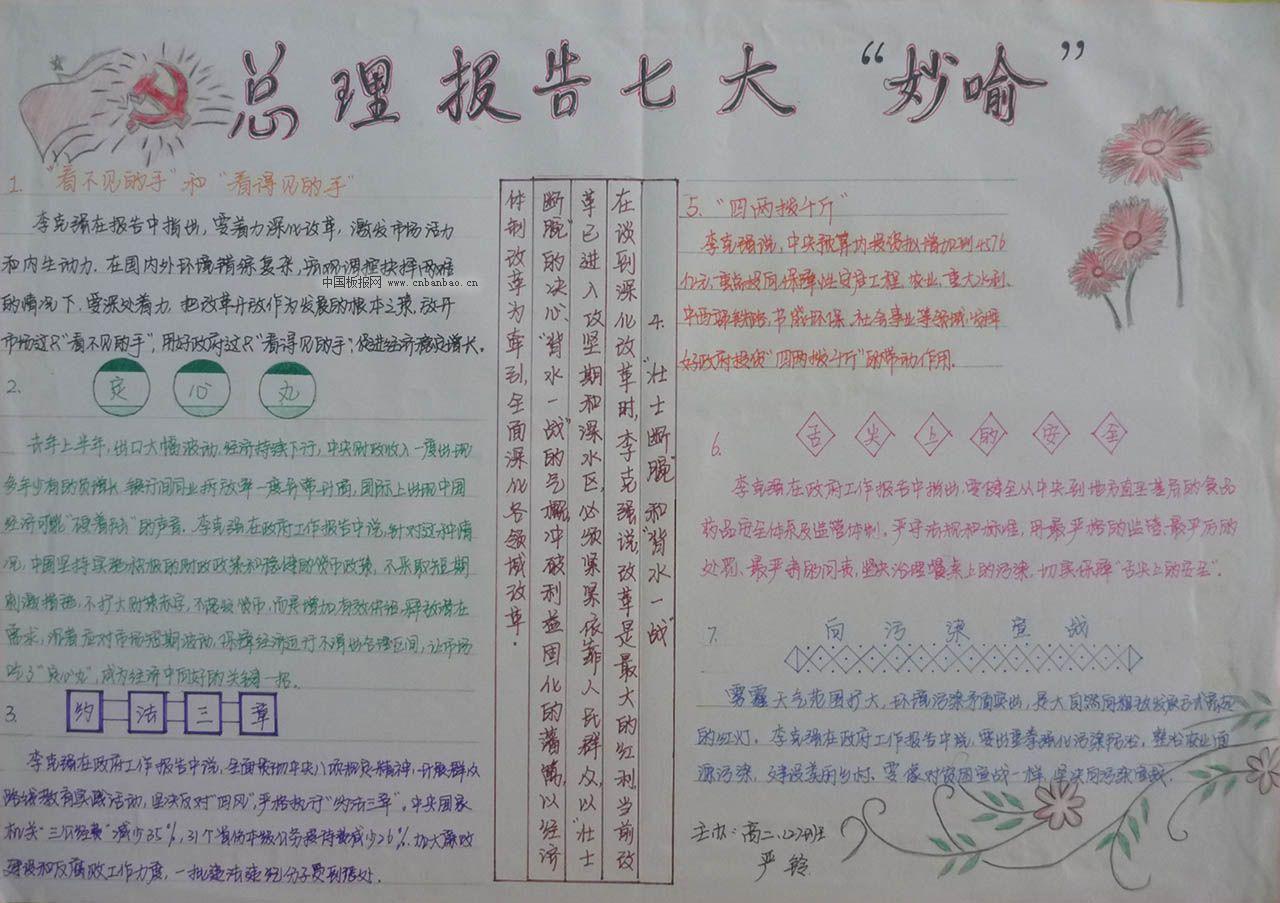 总理报告七大“妙喻”
1. “看不见的手”和“看得见的手”
李克强在报告中指出，要着力深化改革，激发市场活力
和内生动力．在国内外环境错综复杂，宏观调控抉择两难
的情况下．要深处着力，把改革开放作为发展的根本之策．放开
市场这只“看不见的手”，用好政府这只“看得见的手”，促进经济稳定增长。
中国板报网
www.cnbanbao.cn
2. 定 心 丸
去年上半年，出口大幅波动，经济持续下行，中央财政收入一度出现
多年少有的负增长．银行间同业拆放率一度异常升高，国际上出现中国
经济可能“硬着陆”的声音．李克强在政府工作报告中说，针对这种情
况，中国坚持实施积极的财政政策和稳健的货币政策，不采取短期
刺激措施，不扩大财政赤字，不超发货币，而是增加有效供给．释放潜在
需求，沉着应对市场短期波动，保障经济运行不滑出合理区间，让市场
吃了“定心丸”，成为经济中向好的关键一招．
3. 约 法 三 章
李克强在政府工作报告中说，全面贯彻中央八项规定精神，开展群众
路线教育实践活动，坚决反对“四风”，严格执行“约法三章”．中央国家
机关“三公经费”减少35%，31个省份本级公务接待费减少26%．加大廉政
建设和反腐败工作力度，一批违法违纪分子受到惩处．
4.“壮士断腕”和“背水一战”
在谈到深化改革时，李克强说，改革是最大的红利，当前改
革已进入攻坚期和深水区，必须紧紧依靠人民群众，以“壮士
断腕”的决心、“背水一战”的气概，冲破利益固化的藩篱，以经济
体制改革为牵引，全面深化各领域改革．
5.“四两拨千斤”
李克强说，中央预算内投资拟增加到4576
亿元，重点投向保障性安居工程、农业、重大水利、
中西部铁路、节能环保、社会事业等领域，发挥
好政府投资“四两拨千斤”的带动作用．
6. 舌 尖 上 的 安 全
李克强在政府工作报告中指出，要健全从中央到地方直至基层的食品
药品安全体系及监管体制．严守法规和标准，用最严格的监管、最严厉的
处罚、最严肃的问责，坚决治理餐桌上的污染，切实保障“舌尖上的安全”．
7. 向污染宣战
雾霾天气范围扩大，环境污染矛盾突出，是大自然向粗放发展方式亮起
的红灯．李克强在政府工作报告中说，要出重拳强化污染防治，整治农业面
源污染，建设美丽乡村．要像对贫困宣战一样，坚决向污染宣战．
主办：高二、(22)班
严 铃